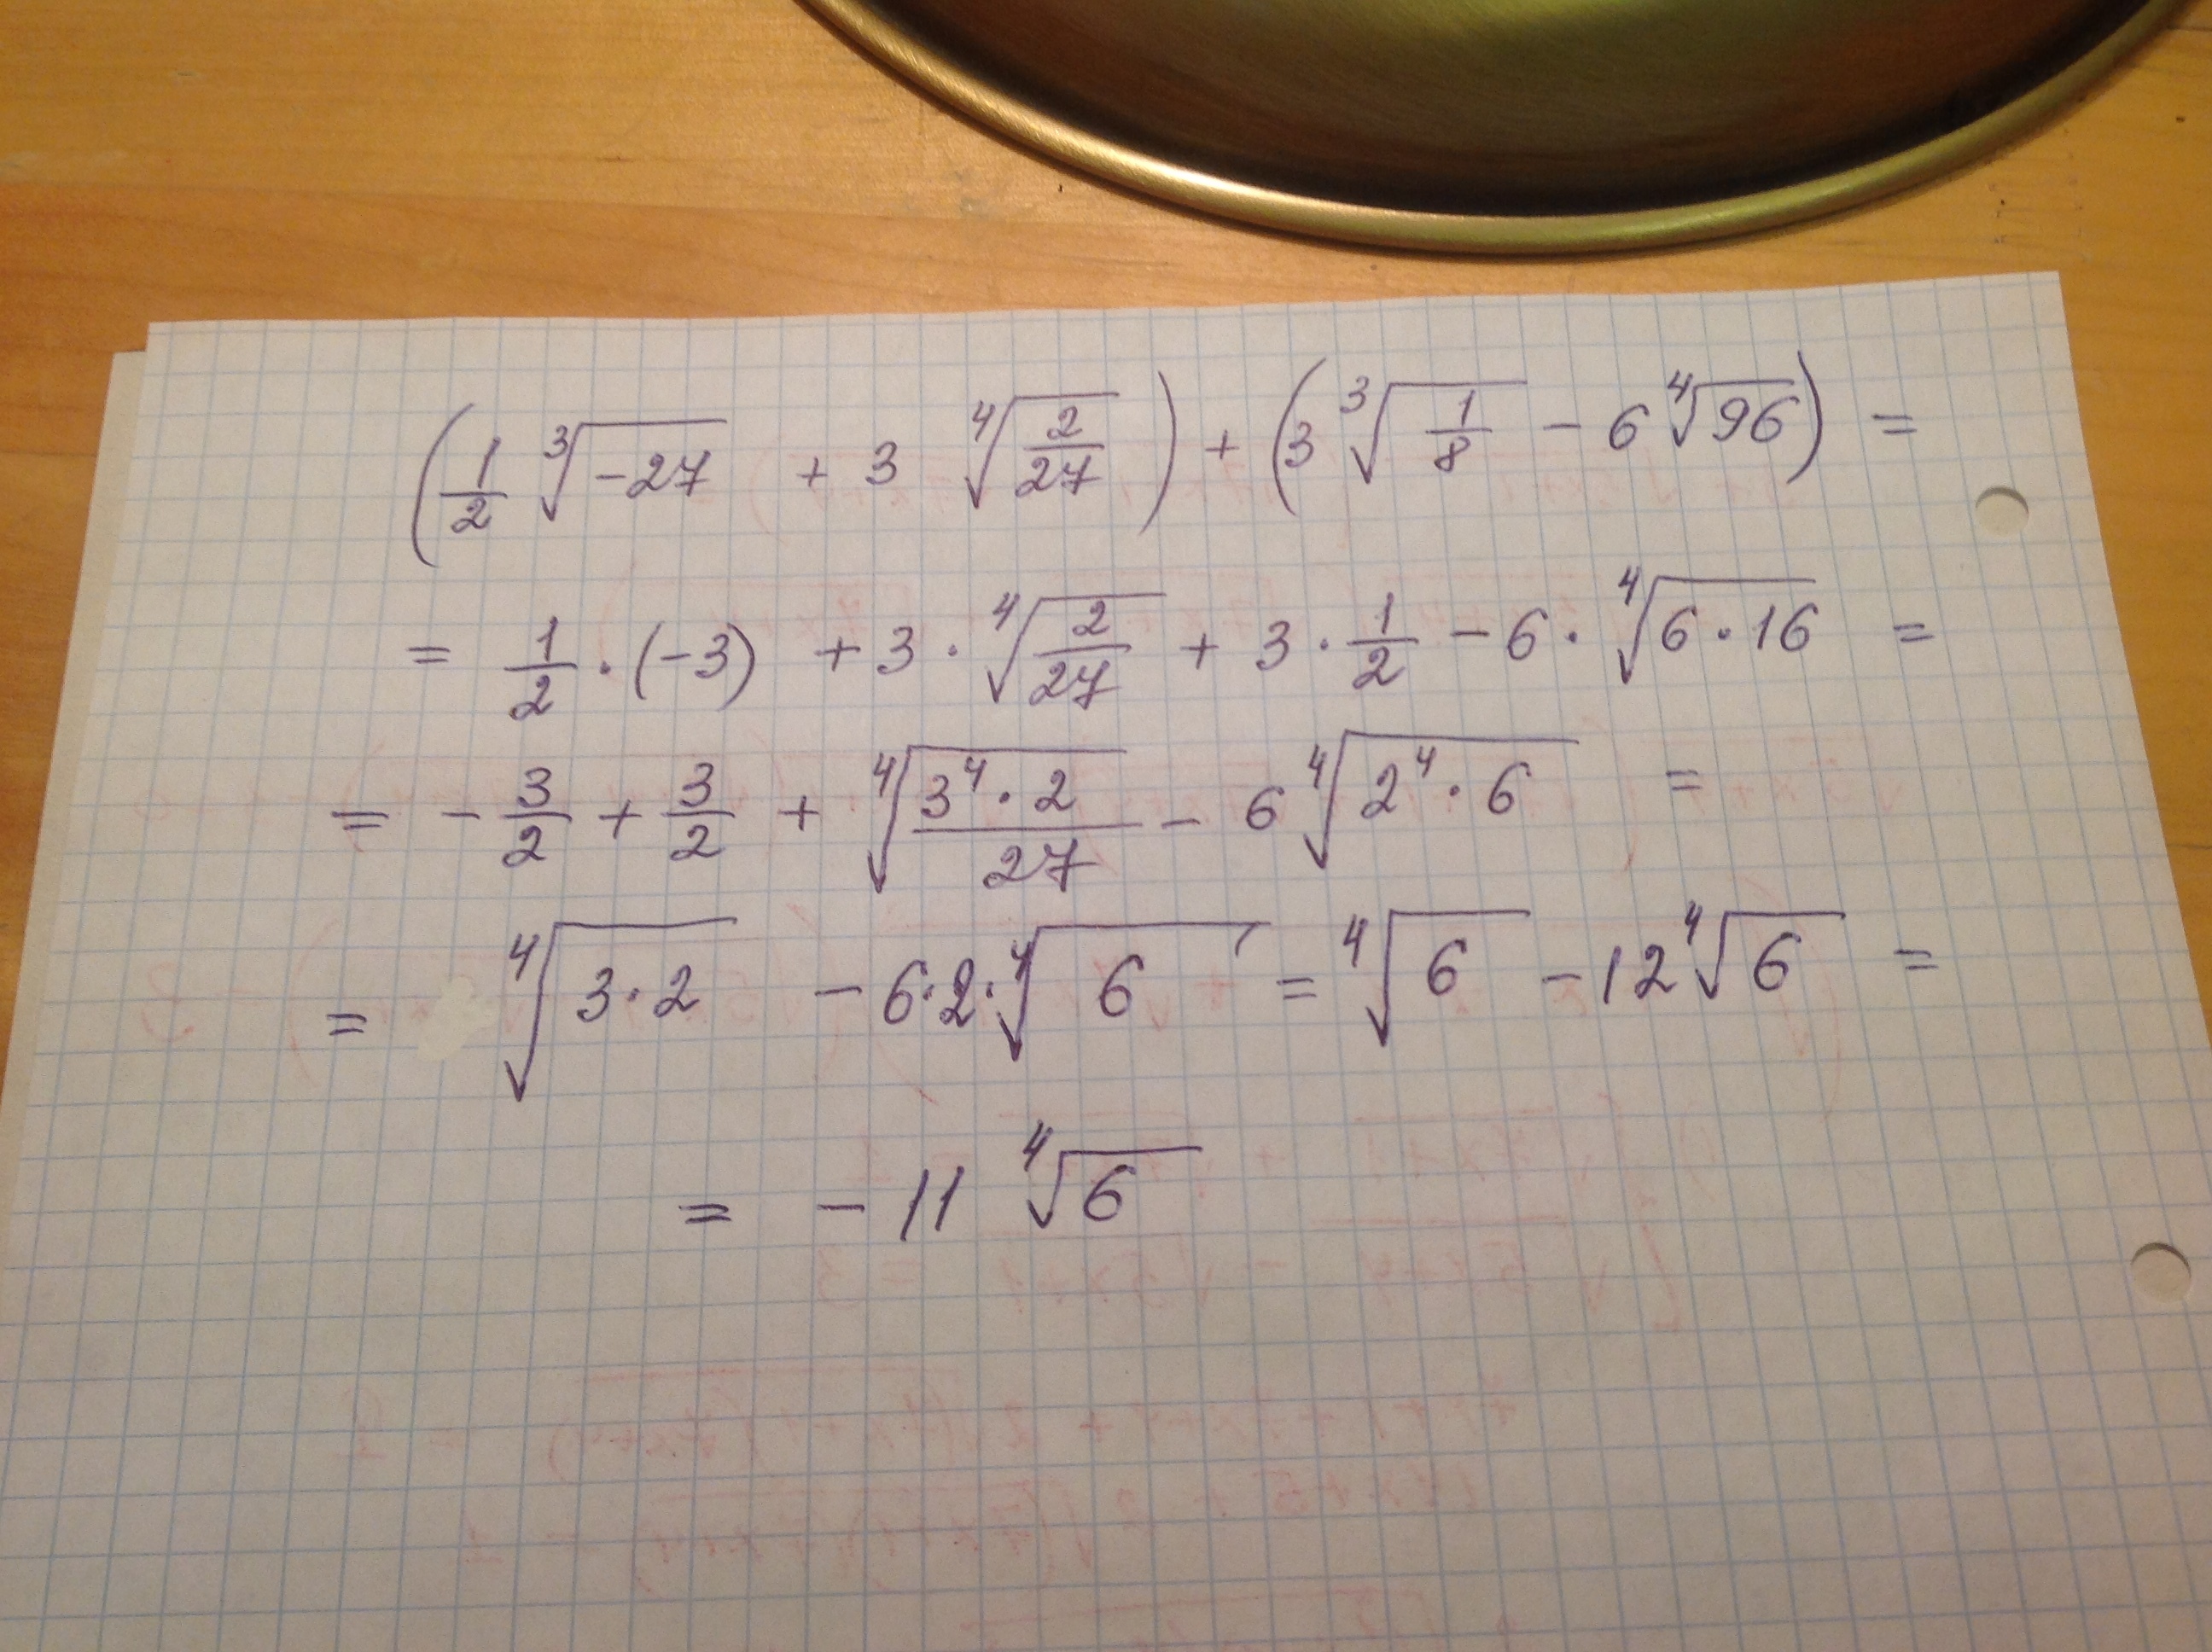 (1/2 ∛(-27) + 3 ∜(2/27)) + (3 ∛(1/8) - 6 ∜96) =
= 1/2 · (-3) + 3 · ∜(2/27) + 3 · 1/2 - 6 · ∜(6 · 16) =
= - 3/2 + 3/2 + ∜((3⁴ · 2)/27) - 6 ∜(2⁴ · 6) =
= ∜(3 · 2) - 6 · 2 · ∜6 = ∜6 - 12 ∜6 =
= - 11 ∜6